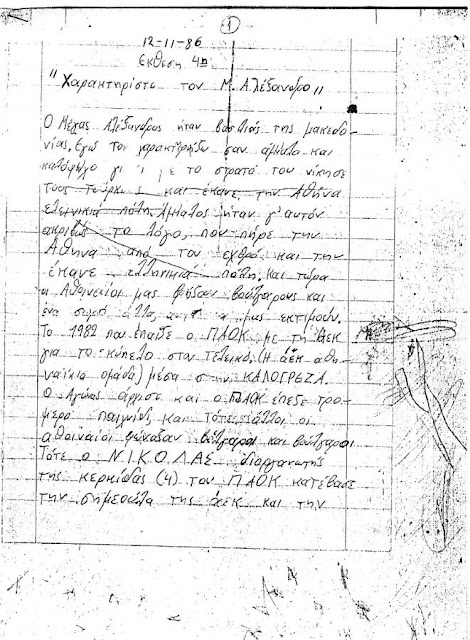 1
12-11-86
Έκθεση 4η
"Χαρακτηρίστε τον Μ. Αλέξανδρο"
Ο Μέγας Αλέξανδρος ήταν βασιλιάς της μακεδο-
νίας. Εγώ τον χαρακτηρίζω σαν άμματο και
με το στρατό του νίκησε
τους τούρκους και έκανε την Αθήνα
ελληνικιά πόλη. Άμματος ήταν γι' αυτόν
ακριβώς το λόγο, που πήρε την
Αθήνα από τον εχθρό και την
έκανε ελληνικιά πόλη. Και τώρα
οι Αθηναίοι μας φωνάζουν βούλγαρους και
ένα σωρό άλλα, αντί να μας εκτιμούν.
Το 1982 που έπαιζε ο ΠΑΟΚ με τη ΑΕΚ
για το κύπελο στον τελικό. (Η άεκ αθη-
ναϊκιά ομάδα) μέσα στην ΚΑΛΟΓΡΕΖΑ.
Ο Αγώνας άρχισε και ο ΠΑΟΚ έπεζε τρο-
μερό παιχνίδι, και τότε οι
αθοιναίοι φώναζαν βούλγαροι και βούλγαροι
Τότε ο ΝΙΚΟΛΑΣ διοργανωτής
της κερκίδας (4) του ΠΑΟΚ κατέβασε
την σημεούλα της άεκ και την